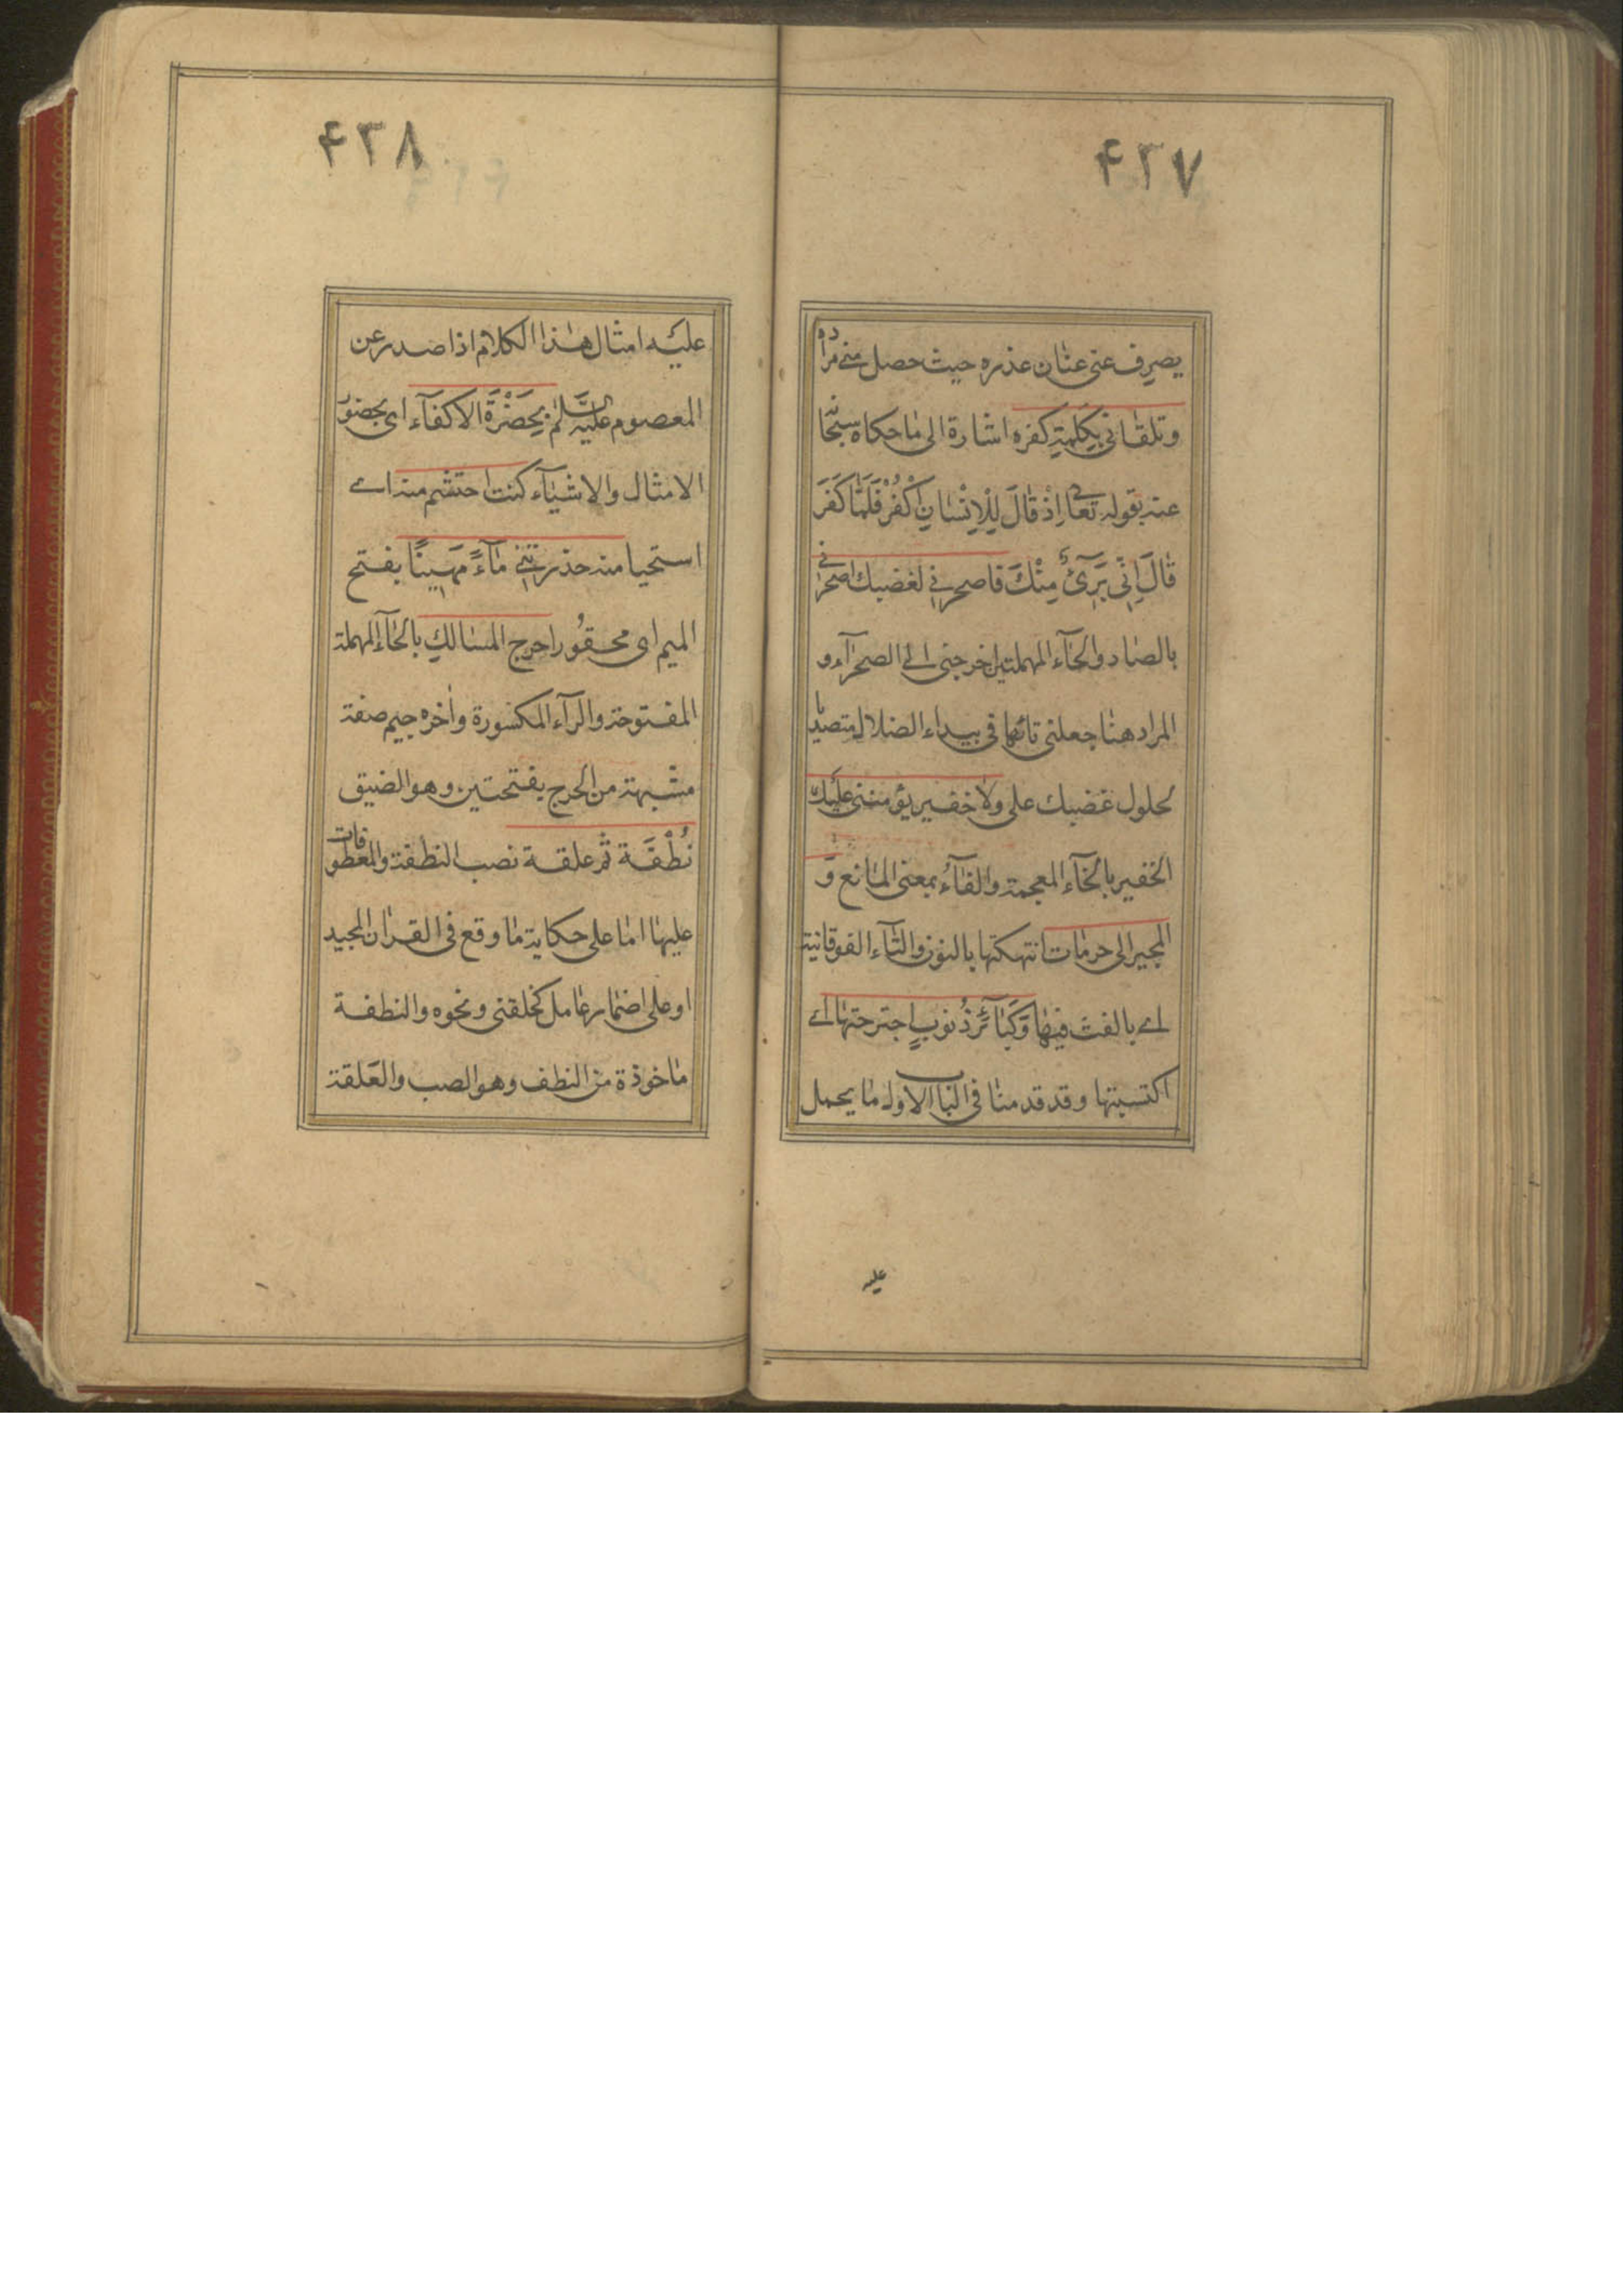 ۴۳۷
يصرف عنى عنان عذره حيث حصل منى مراده
وتلقانى بكلمة كفره اشارة الى ما حكاه سبحانه
عنه بقوله تعالى اِذْ قالَ لِلْاِنْسانِ اكْفُرْ فَلَمّا كَفَرَ
قالَ اِنّى بَرِىٓءٌ مِنْكَ فاصحرنى لغضبك اصحرنى
بالصاد والحآء المهملتين اخرجنى الى الصحرآء و
المراد هنا جعلنى تائها فى بيداء الضلال متصديا
لحلول غضبك على ولا خفير يؤمننى عليك
الخفير بالخآء المعجمة والفآء بمعنى المانع و
المجير الى حرمات انتهكتها بالنون والتآء الفوقانية
اے بالغت فيها وَكَبآئِرُ ذُنوبٍ اجترحتها اے
اكتسبتها وقد قدمنا فى الباب الاول ما يحمل
عليه
۴۳۸
عليه امثال هذا الكلام اذا صدر عن
المعصوم عليه السّلام بِحَضْرَةِ الاكفآء اى بحضور
الامثال والاشيآء كنت احتشم منه اے
استحيا منه حذرتنى مآءً مَهينًا بفتح
الميم اى محقورا حرج المسالك بالحآء المهملة
المفتوحة والرآء المكسورة واٰخره جيم صفة
مشبهة من الحرج بفتحتين وهو الضيق
نُطْفَة ثم علقة نصب النطفة والمعطوفات
عليها اما على حكاية ما وقع فى القراٰن المجيد
او على اضمار عامل كخلقنى ونحوه والنطفة
ماخوذة من النطف وهو الصب والعَلقة